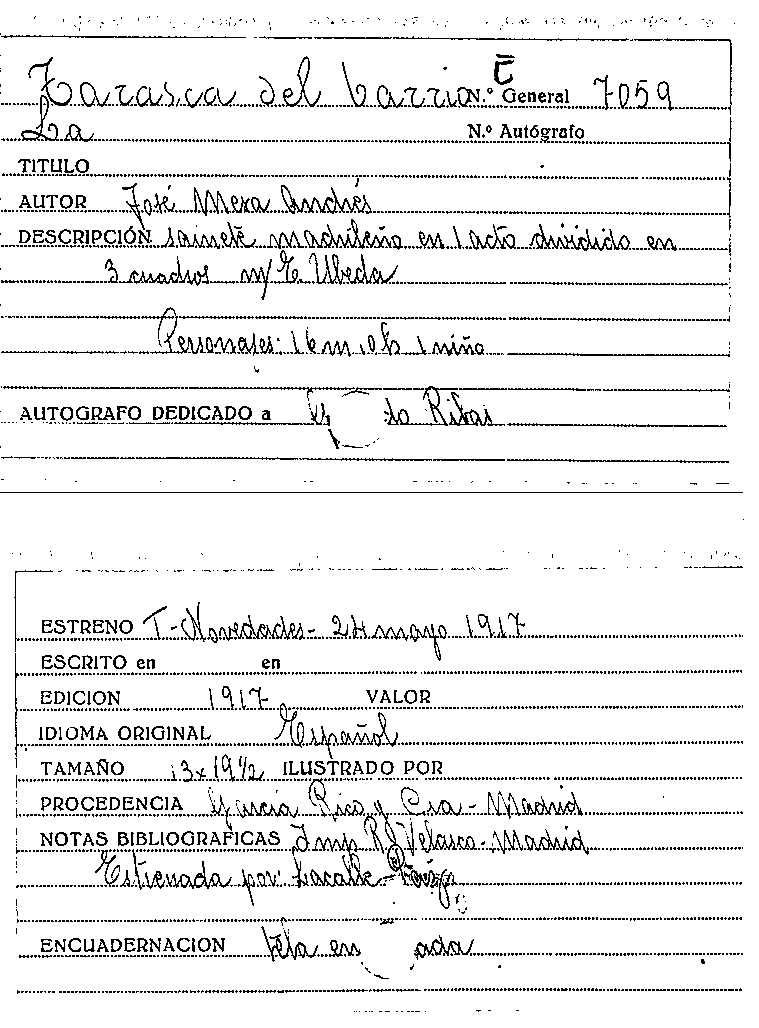 Tarasca del barrio C N.º General 7059
La N.º Autógrafo
TITULO
AUTOR José Mera Andrés
DESCRIPCIÓN sainete madrileño en 1 acto dividido en
3 cuadros m/ E. Ubeda
Personajes: 16 m 10 h 1 niño
AUTOGRAFO DEDICADO a Ribas
ESTRENO T-Novedades- 24 mayo 1917
ESCRITO en en
EDICION 1917 VALOR
IDIOMA ORIGINAL Español
TAMAÑO 13x19½ ILUSTRADO POR
PROCEDENCIA García Rico y Cia - Madrid
NOTAS BIBLIOGRAFICAS Imp R Velasco - Madrid
Estrenada por: Lacalle -
ENCUADERNACION tela en ada